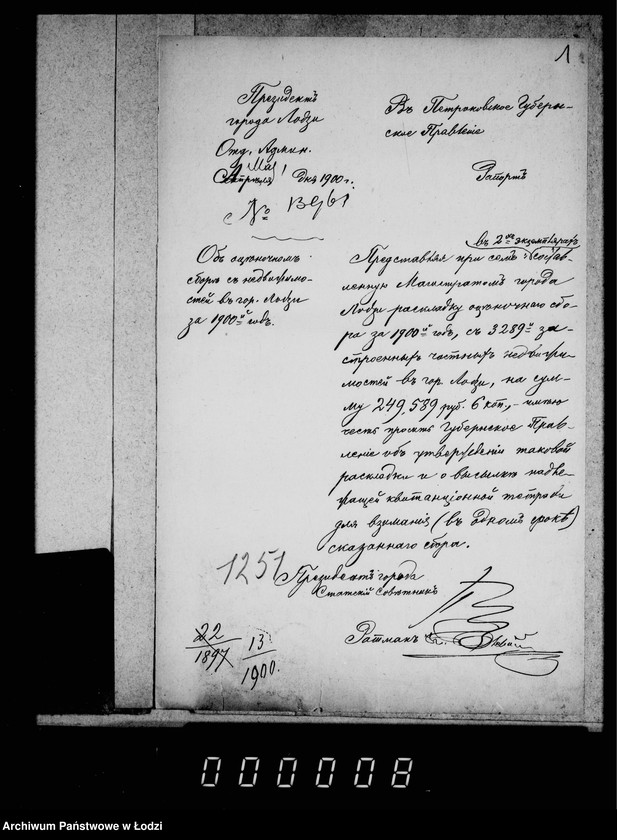 1
Президентъ
города Лодзи
Отд. Админ.
Мая
Апрѣля 1 дня 1900 г.
№ 13961
Объ оцѣночномъ
сборѣ съ недвижимо-
стей въ гор. Лодзи
за 1900ый годъ.
Въ Петроковское Губерн-
ское Правленіе
Рапортъ
въ 2хъ экземплярахъ
Представляя при семъ состав-
ленную Магистратомъ города
Лодзи раскладку оцѣночнаго сбо-
ра за 1900ый годъ, съ 3289и за-
строенныхъ частныхъ недвижи-
мостей въ гор. Лодзи, на сум-
му 249,589 руб. 6 коп., имѣю
честь просить Губернское Прав-
леніе объ утвержденіи таковой
раскладки и о высылкѣ надле-
жащей квитанціонной тетради
для взиманія (въ одномъ срокѣ)
сказаннаго сбора.
1251
Президентъ города
Статскій Совѣтникъ
Ратманъ
22
1897
13
1900.
000008
Archiwum Państwowe w Łodzi